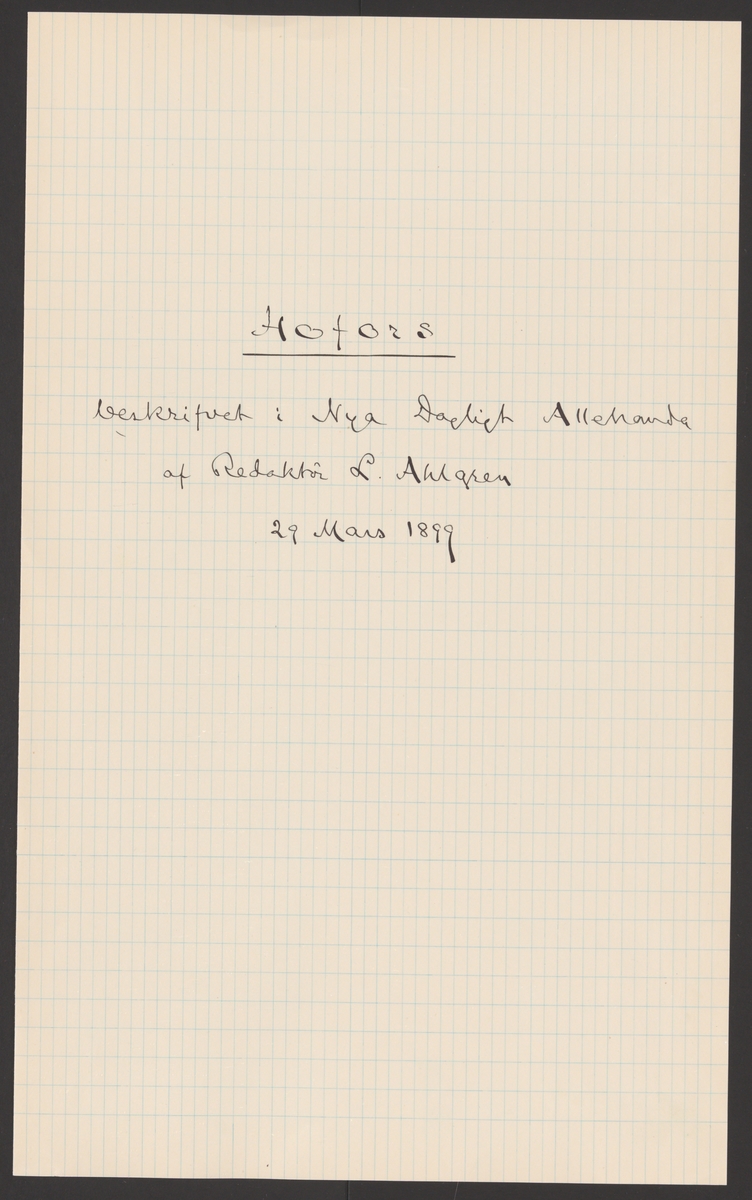 Hofors
beskrifvet i Nya Dagligt Allehanda
af Redaktör L. Ahlgren
29 Mars 1899